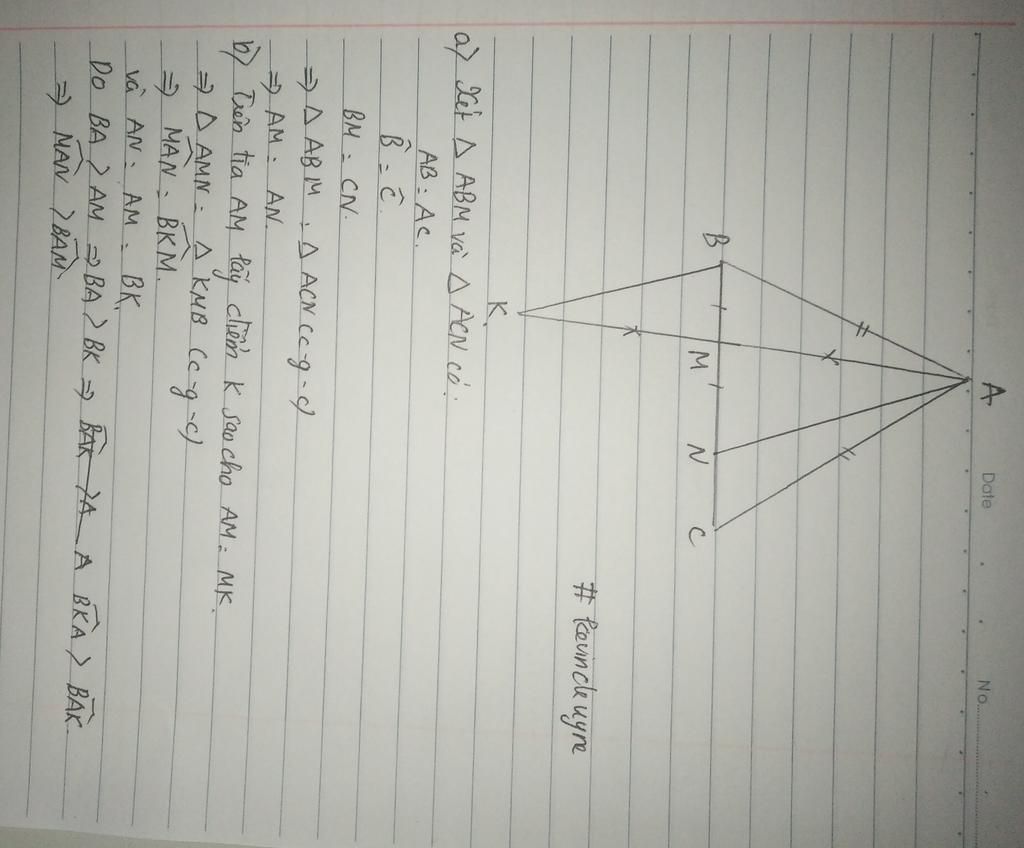 Date
No.
A
B
M
N
C
K
# kevinchuyre
a) Xét Δ ABM và Δ ACN có:
AB = AC.
B̂ = Ĉ.
BM = CN.
⇒ Δ ABM = Δ ACN (c-g-c)
⇒ AM = AN.
b) Trên tia AM lấy điểm K sao cho AM = MK.
⇒ Δ AMN = Δ KMB (c-g-c)
⇒ M̂AN = B̂KM.
và AN = AM = BK.
Do BA > AM ⇒ BA > BK ⇒ B̂AK > A A B̂KA > B̂AK.
⇒ M̂AN > B̂AM.